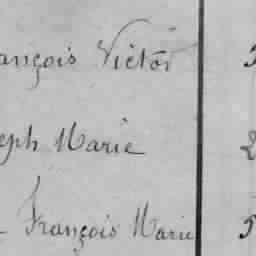 ançois Victor
eph Marie 2
François Marie 5